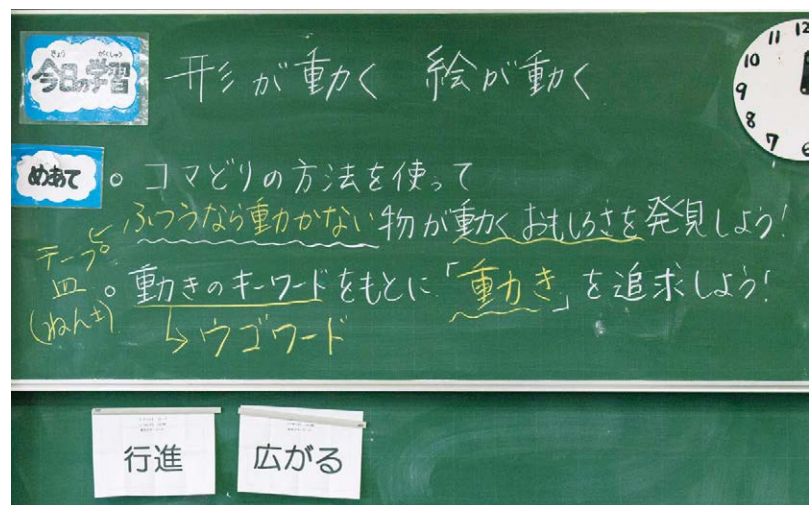 きょう がくしゅう
今日の学習
形が動く 絵が動く
めあて
。コマどりの方法を使って
ふつうなら動かない物が動くおもしろさを発見しよう!
テープ
皿
(ねん土)
。動きのキーワードをもとに「動き」を追求しよう!
↳ウゴワード
行進
広がる
11 12
10
9
8
7 6